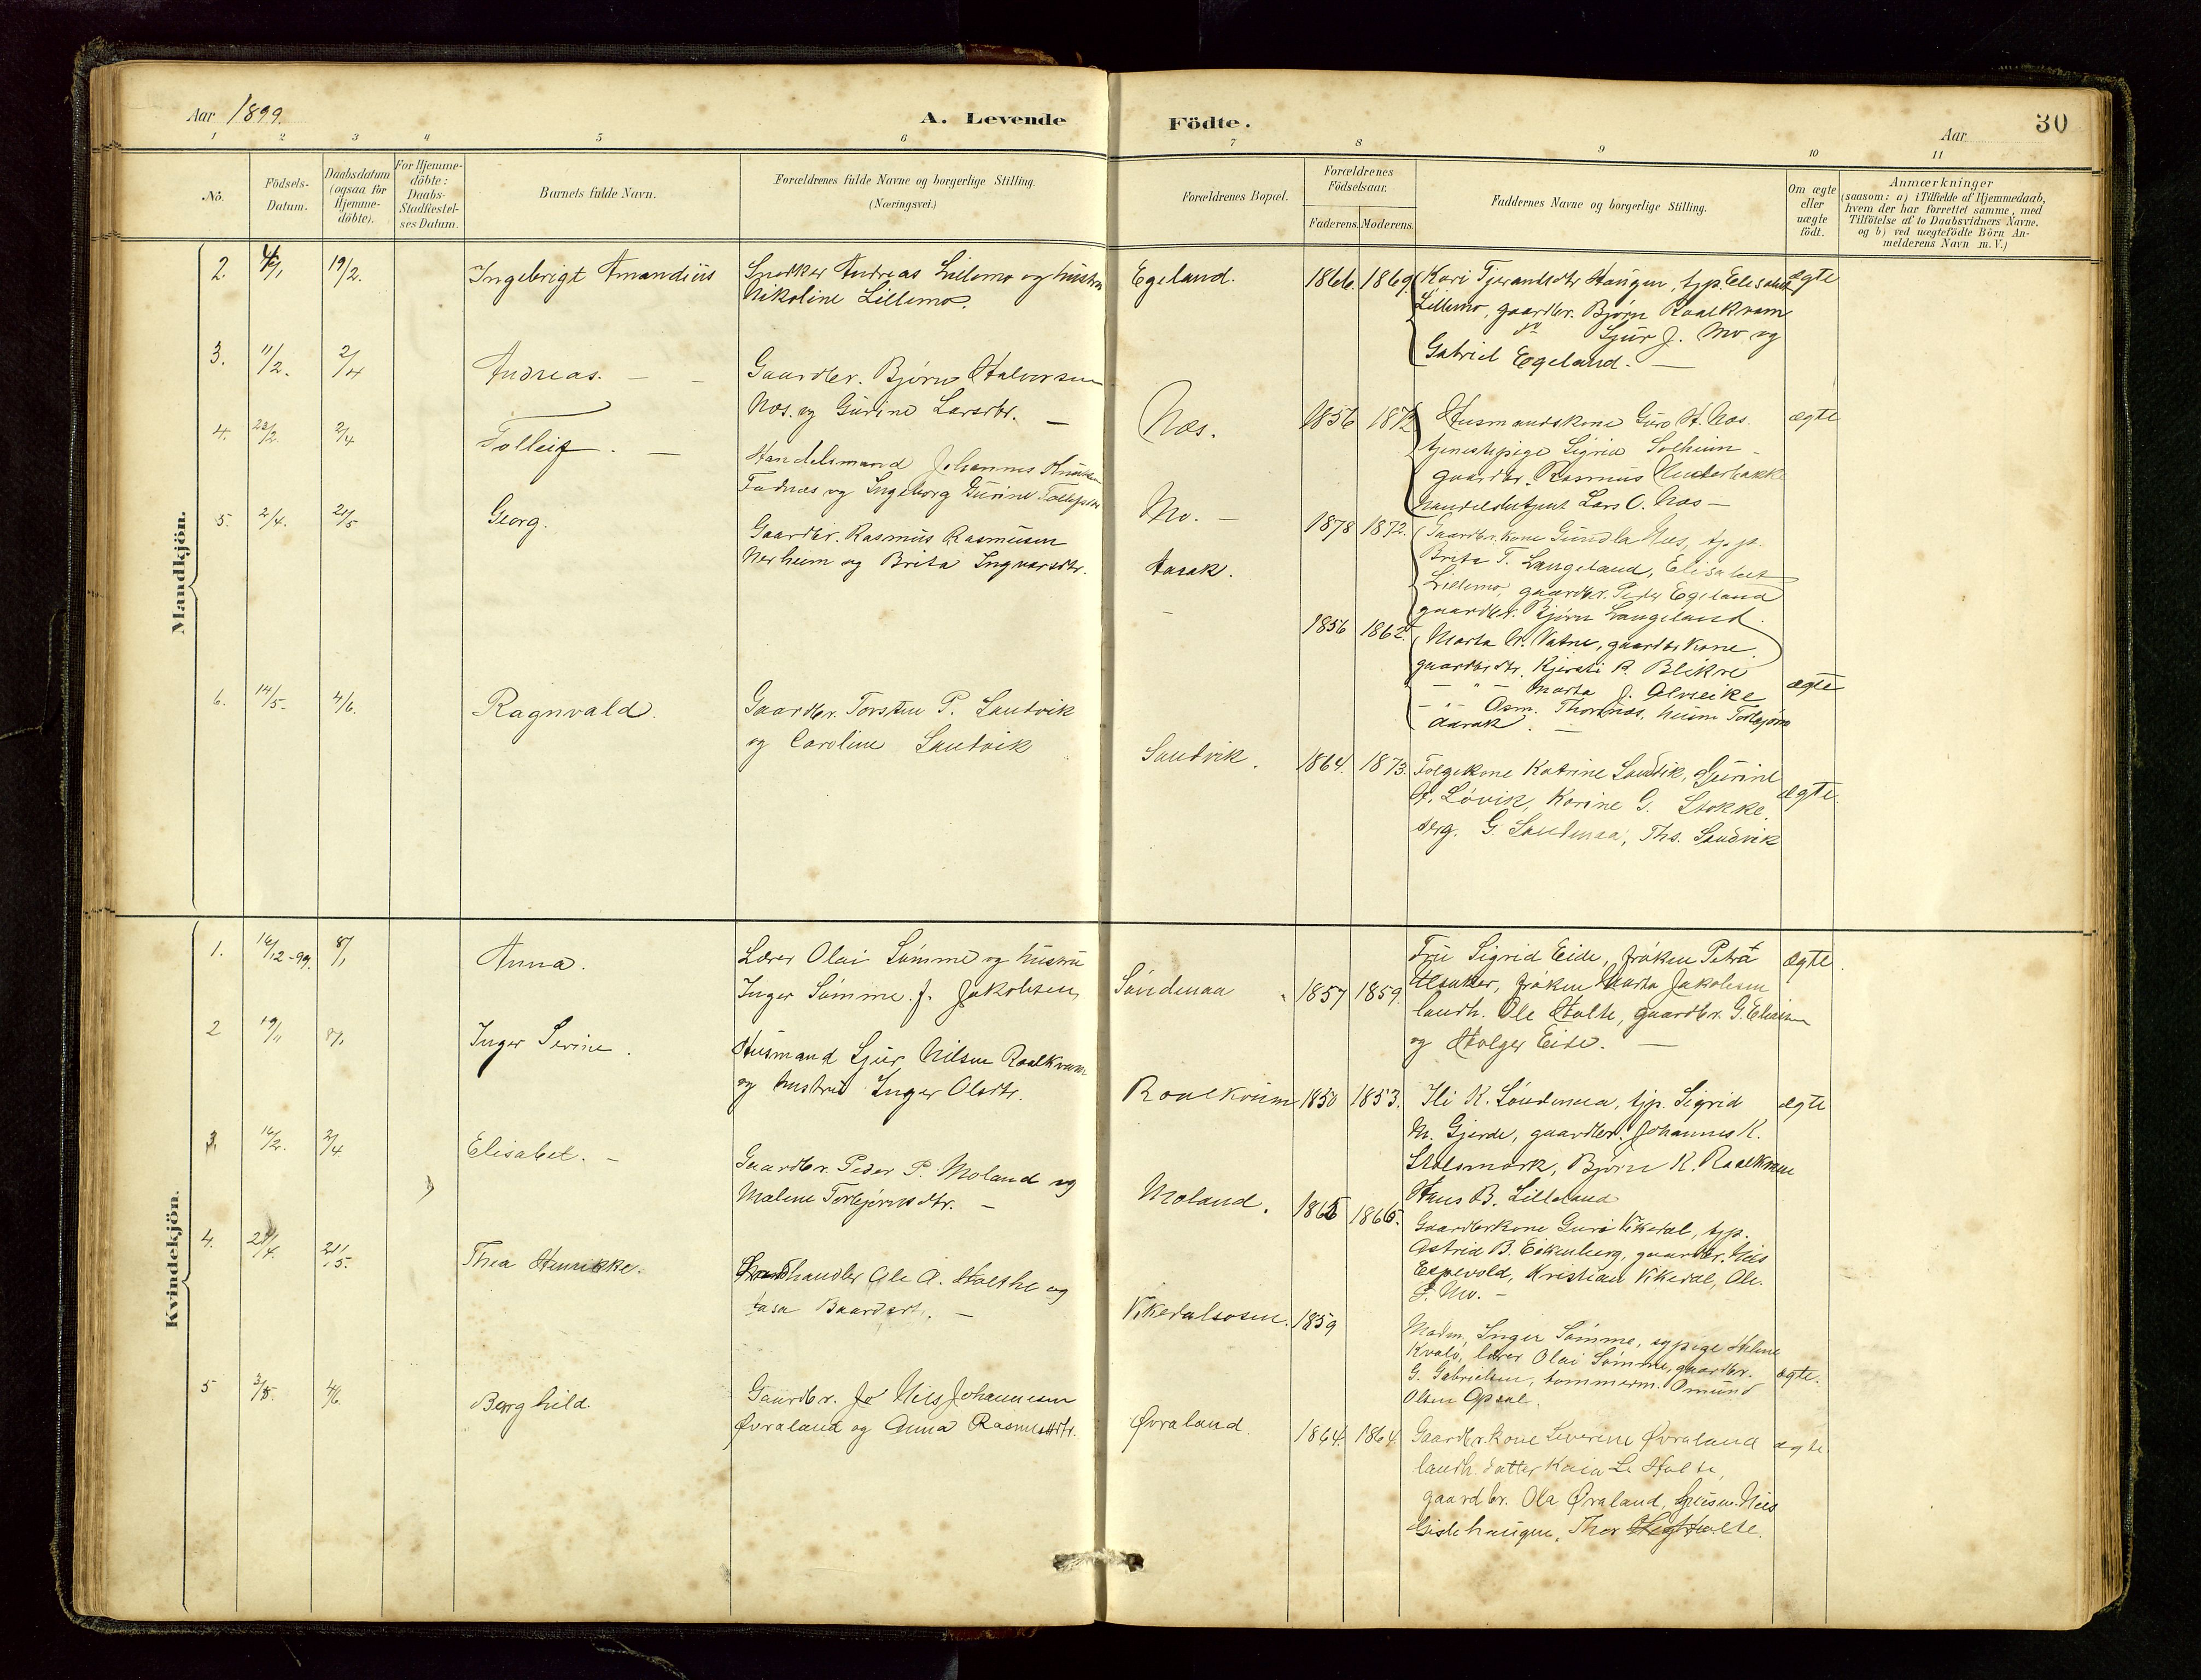 Aar 1899.
A. Levende Födte.
Aar
30
1 2 3 4 5 6 7 8 9 10 11
No.
Födsels-
Datum.
Daabsdatum
(ogsaa for
Hjemme-
döbte).
For Hjemme-
döbte:
Daabs-
Stadfæstel-
ses Datum.
Barnets fulde Navn.
Forældrenes fulde Navne og borgerlige Stilling.
(Næringsvei.)
Forældrenes Bopæl.
Forældrenes
Födselsaar.
Faderens. Moderens.
Faddernes Navne og borgerlige Stilling.
Om ægte
eller
uægte
födt.
Anmærkninger
(saasom: a) i Tilfælde af Hjemmedaab,
hvem der har forrettet samme, med
Tilföielse af to Daabsvidners Navne,
og b) ved uægtefödte Börn An-
melderens Navn m. V.)
Mandkjön.
2. 19/2. Ingebrigt Amandius
Snedker Andreas Lillemo og hustru
Nikoline Lillemo.
Egeland. 1866. 1869
Kari Tjerandsdtr Haugen, tjp. Elisabet
Lillemo, gaardbr. Bjørn Raalkvam
Sjur J. Mo og
Gabriel Egeland. —
ægte
3. 11/2. 2/4 Andreas. — —
Gaardbr. Bjørn Halvorsen
Næs. og Gurine Larsdtr. —
Næs. 1856 1872
Husmandskone Guro H. Næs.
tjenestepige Sigrid Solheim
gaardbr. Rasmus
Handelsbetjent Lars O. Næs —
ægte
4. 23/2. 2/4 Tolleif. —
Handelsmand Johannes Knutsen
Fadnæs og Ingeborg Gurine
Mo. — 1878 1872.
Gaardbr. kone Gundla Næs, tjp.
Brita T. Langeland, Elisabet
Lillemo, gaardbr. Peder Egeland
gaardbr. Bjørn Langeland.
5. 2/4. 21/5 Georg.
Gaardbr. Rasmus Rasmusen
Nerheim og Brita Ingvarsdtr.
Aarak. 1856 1862.
Marta A. Vatne, gaardbr kone
gaardbr dtr. Kjersti R. Blikre
— " — Marta J. Alvseike
— " — Asm. Thornæs, Torbjørn
Aarak. —
ægte
6. 14/5. 4/6. Ragnvald.
Gaardbr. Torsten P. Sandvik
og Caroline Sandvik
Sandvik. 1864. 1873.
Folgekone Katrine Sandvik, Gurine
H. Løvik, Karine G. Stokke.
Serg. G. Søndenaa, Ths. Sandvik
ægte.
Kvindekjön.
1. 16/12-99. 8/1 Anna.
Lærer Olai Sømme og hustru
Inger Sømme f. Jakobsen
Søndenaa 1857 1859.
Fru Sigrid Eide, frøken Petra
frøken Marta Jakobsen
landh. Ole Holte, gaardbr. G. Eliasen
og Holger Eide. —
ægte.
2 19/11 8/1 Inger Serine.
Husmand Sjur Nilsen Raalkvam
og hustru Inger Olsdtr.
Raalkvam 1850 1853.
Ili K. Søndenaa, tjp. Sigrid
M. Gjerde, gaardbr. Johannes K.
Stølsmark, Bjørn K. Raalkvam
Hans B. Lilleland
ægte
3. 16/2. 2/4 Elisabet. —
Gaardbr. Peder P. Moland og
Malene Torbjørnsdtr. —
Moland. 1865 1866.
Gaardbrkone Guri Vikedal, tjp.
Astrid B. Eikenberg, gaardbr. Nils
Espevold, Kristian Vikedal, Ole
Mo. —
4. 21/4. 21/5. Thea Henrikke.
Landhandler Ole A. Holthe og
Aasa Baardsdtr. —
Vikedalsosen. 1859
Madm. Inger Sømme, sypige Helene
Kvalø, lærer Olai Sømme, gaardbr.
G. Gabrielsen, tømmerm. Omund
Olsen Opsal.
ægte.
5 3/5. 4/6. Borghild.
Gaardbr. Nils Johannesen
Øvraland og Anna Rasmusdtr.
Øvraland. 1864. 1864
Gaardbr. kone Severine Øvraland
landh. datter Kaia Holte,
gaardbr. Ola Øvraland, Nils
Thor Holte.
ægte